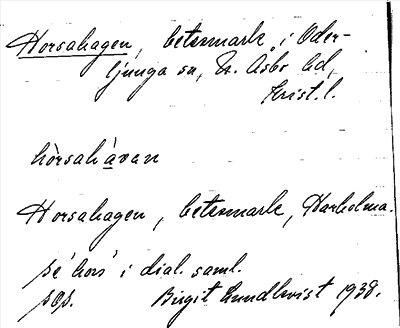 Horsahagen, betesmark i Oder-
ljunga sn, N. Åsbo hd,
Krist. l.
hòrsah`avan
Horsahagen, betesmark, Harholma.
se 'hors' i dial. saml.
sqs. Birgit Lundkvist 1938.